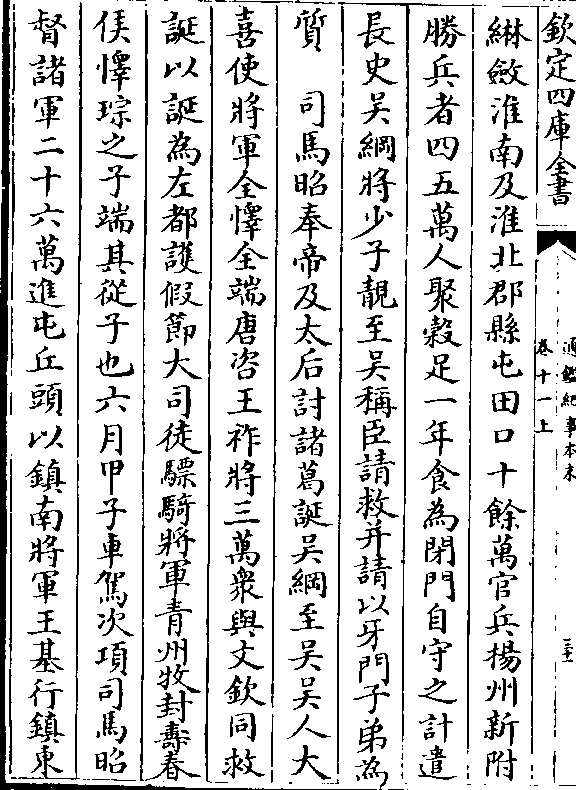 欽定四庫全書
通鑑紀事本末
卷十一上
綝斂淮南及淮北郡縣屯田口十餘萬官兵揚州新附
勝兵者四五萬人聚穀足一年食為閉門自守之計遣
長史吳綱將少子靚至吳稱臣請救并請以牙門子弟為
質　司馬昭奉帝及太后討諸葛誕吳綱至吳吳人大
喜使將軍全懌全端唐咨王祚將三萬衆與文欽同救
誕以誕為左都護假節大司徒驃騎將軍青州牧封壽春
侯懌琮之子端其從子也六月甲子車駕次項司馬昭
督諸軍二十六萬進屯丘頭以鎮南將軍王基行鎮東